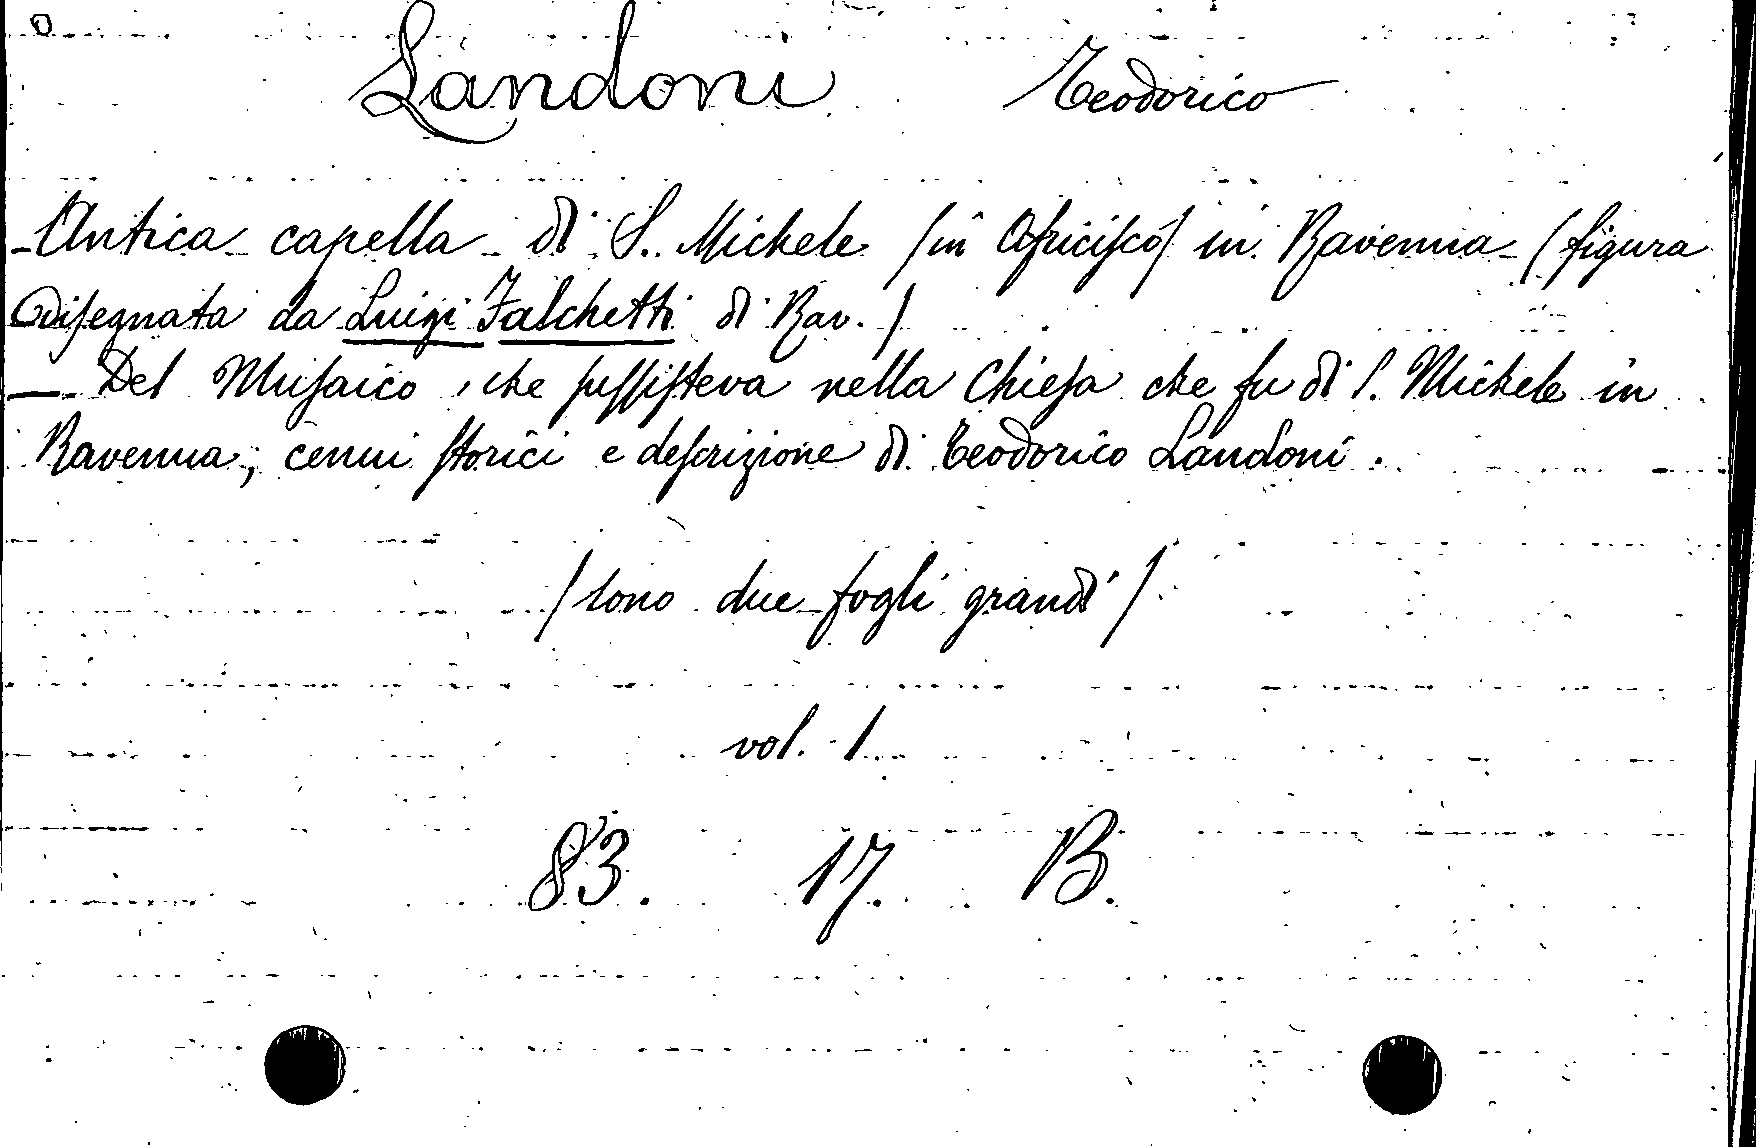 Landoni Teodorico
-Antica capella di S. Michele (in Africisco) in Ravenna (figura
disegnata da Luigi Falchetti di Rav.)
— Del Musaico, che sussisteva nella Chiesa che fu di S. Michele in
Ravenna; cenni storici e descrizione di Teodorico Landoni.
(sono due fogli grandi)
vol. 1
83. 17. B.